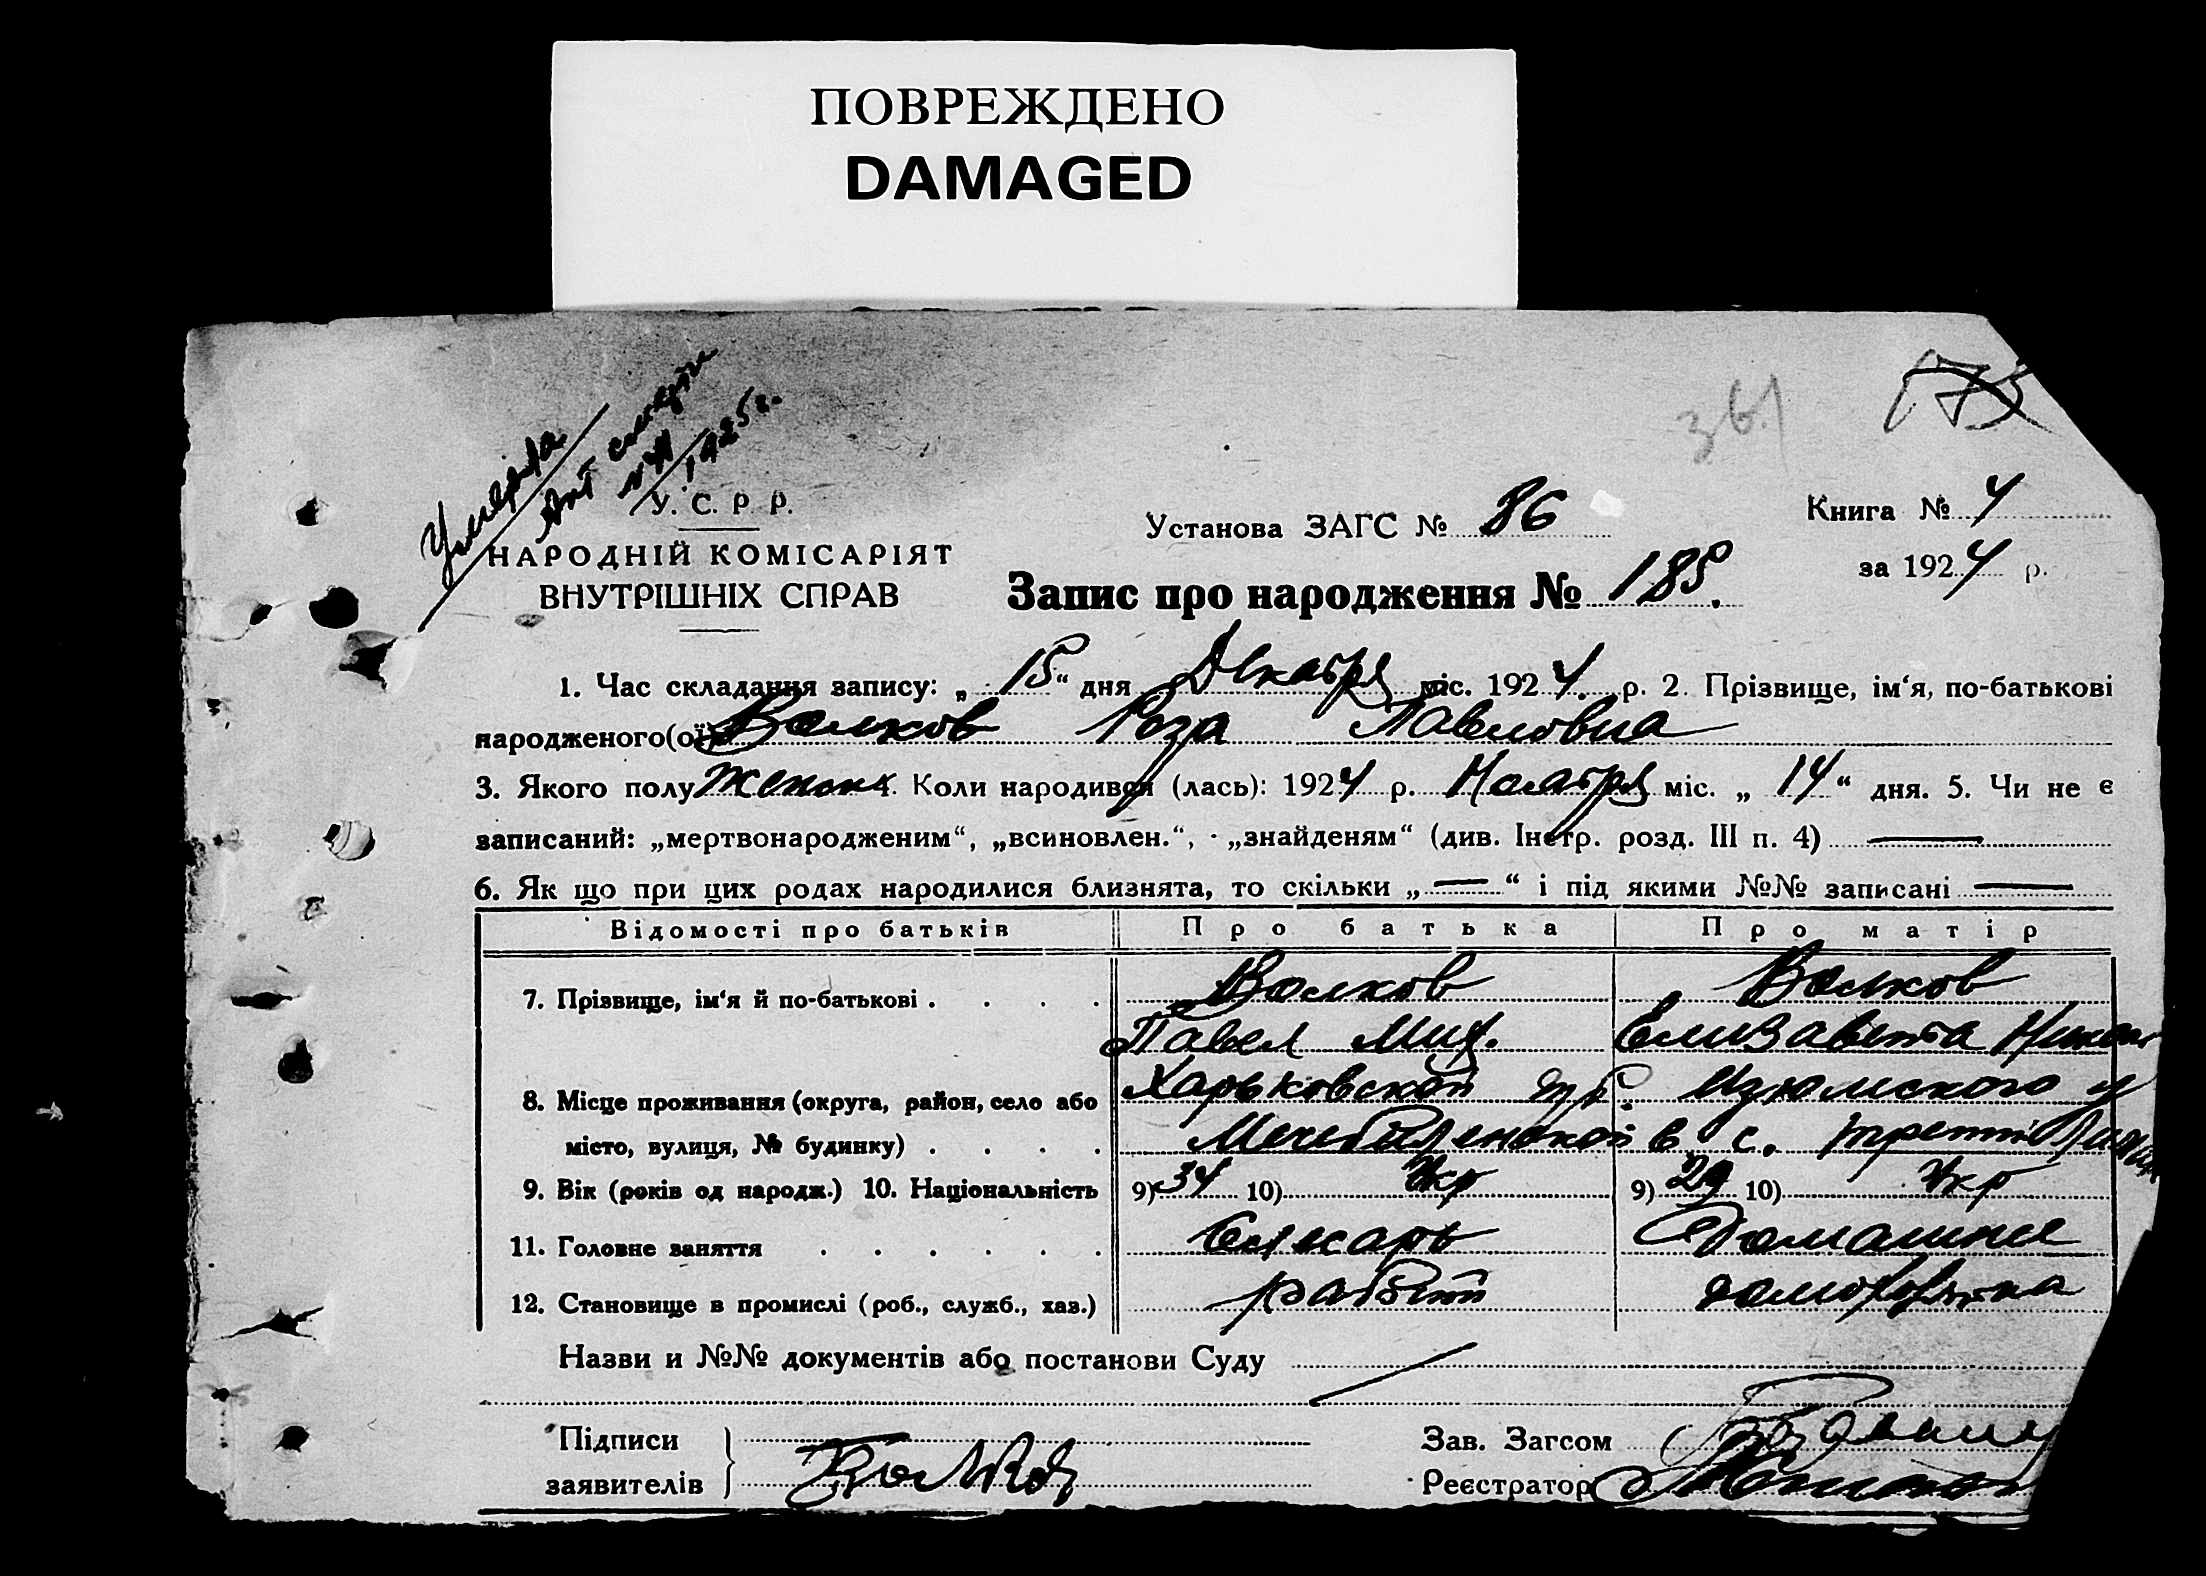 ПОВРЕЖДЕНО
DAMAGED
361
175
Умерла
Акт смерти
1925 г.
У. С. Р. Р.
НАРОДНІЙ КОМІСАРІЯТ
ВНУТРІШНІХ СПРАВ
Установа ЗАГС № 36
Книга № 4
за 1924 р.
Запис про народження № 185.
1. Час складання запису: „15“ дня Декабря міс. 1924. р. 2. Прізвище, ім‘я, по-батькові
народженого(ої) Волков Роза Павловна
3. Якого полу женск 4. Коли народився (лась): 1924 р. Ноября міс. „14“ дня. 5. Чи не є
записаний: „мертвонародженим“, „всиновлен.“, „знайденям“ (див. Інстр. розд. III п. 4) —
6. Як що при цих родах народилися близнята, то скільки „—“ і під якими №№ записані —
Відомості про батьків Про батька Про матір
7. Прізвище, ім‘я й по-батькові . . . . Волков Волков
Павел Мих. Елизавета Никол
8. Місце проживання (округа, район, село або Харьковской губ. Изюмского у
місто, вулиця, № будинку) . . . . Мечебиленской в с.
9. Вік (років од народж.) 10. Національність 9) 34 10) Укр 9) 29 10) Укр
11. Головне заняття . . . . . . Слесарь Домашние
12. Становище в промислі (роб., служб., хаз.)
Назви и №№ документів або постанови Суду
Підписи
заявителів Волков
Зав. Загсом
Реєстратор